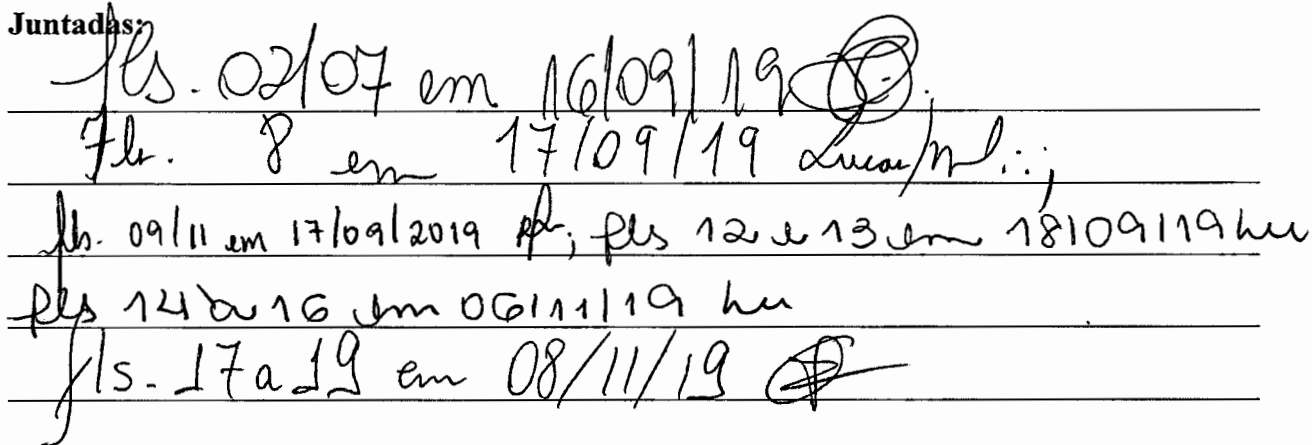 Juntadas:
fls. 02/07 em 16/09/19
Fls. 8 em 17/09/19 Lucas
fls. 09/11 em 17/09/2019 ; fls 12 e 13 em 18/09/19
fls 14 à 16 em 06/11/19
fls. 17 a 19 em 08/11/19